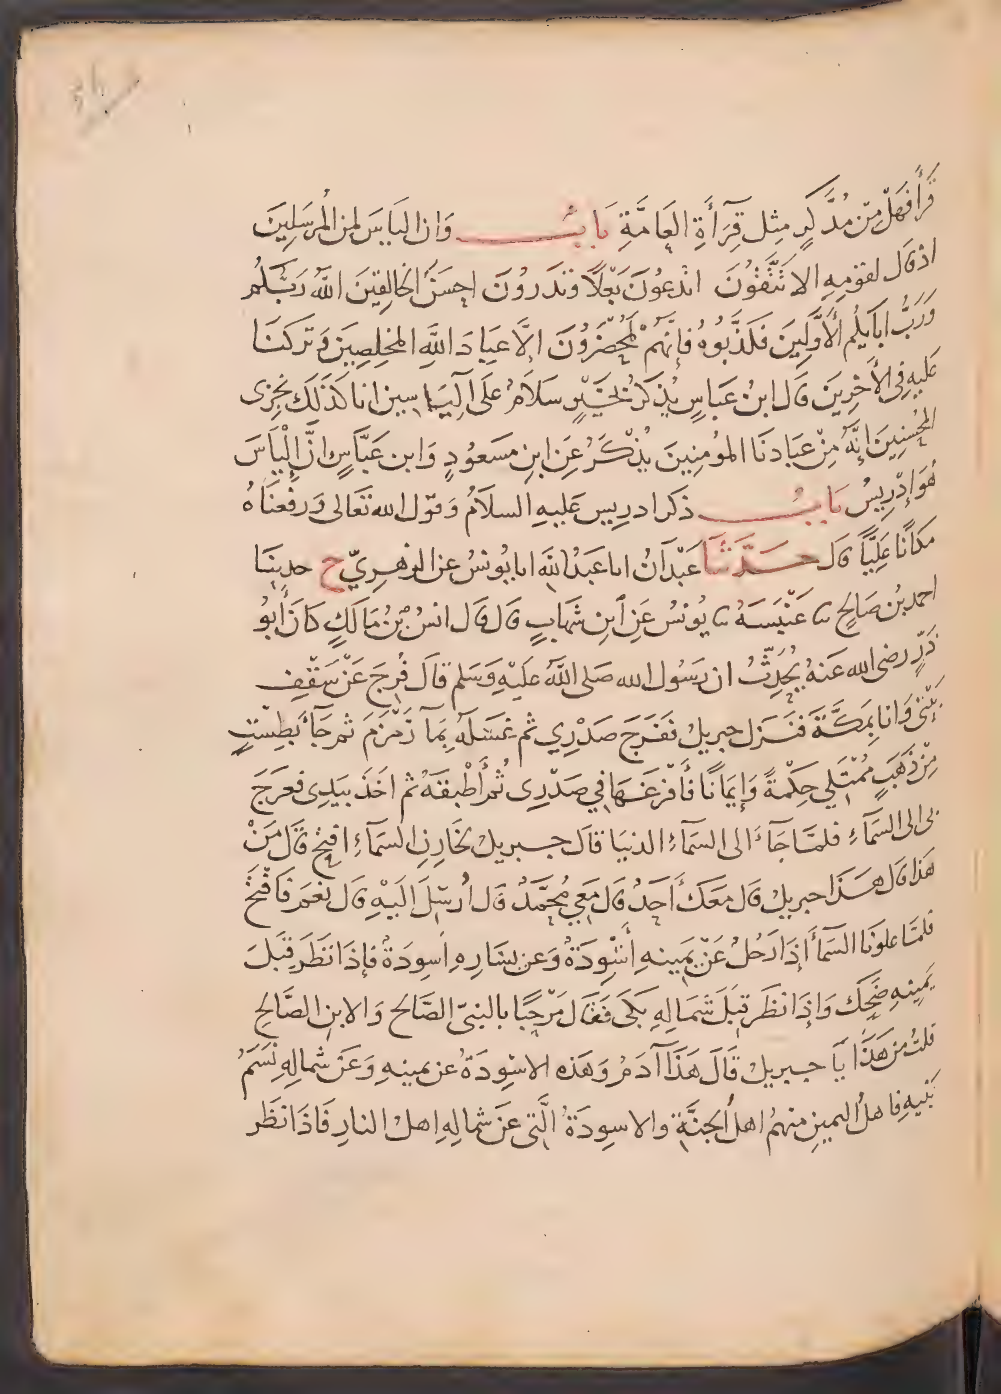 قرأ فهل من مدكر مثل قرأة العامة باب وان الياس لمن المرسلين
اذ قال لقومه الا تتقون اتدعون بعلا وتذرون احسن الخالقين الله ربكم
ورب ابايكم الاولين فكذبوه فانهم لمحضرون الا عباد الله المخلصين وتركنا
عليه في الاخرين قال ابن عباس يذكر بخير سلام على آلياسين انا كذلك نجزى
المحسنين إنه من عبادنا المومنين يذكر عن ابن مسعود وابن عباس ان إلياس
هو إدريس باب ذكر ادريس عليه السلام وقول الله تعالى ورفعناه
مكانا عليا قال حدثنا عبدان انا عبد الله انا يونس عن الزهري ح حدثنا
احمد بن صالح نا عنبسة نا يونس عن ابن شهاب قال قال انس بن مالك كان أبو
ذر رضى الله عنه يحدث ان رسول الله صلى الله عليه وسلم قال فرج عن سقف
بيتى وانا بمكة فنزل جبريل ففرج صدري ثم غسله بمآ زمزم ثم جآء بطست
من ذهب ممتلي حكمة وإيمانا فأفرغها في صدري ثم أطبقه ثم اخذ بيدى فعرج
بى الى السمآء فلما جآء الى السمآء الدنيا قال جبريل لخازن السمآء افتح قال من
هذا قال هذا جبريل قال معك أحد قال معي محمد قال أرسل اليه قال نعم فافتح
فلما علونا السمأ إذا رجل عن يمينه أسودة وعن يساره اسودة فإذا نظر قبل
يمينه ضحك وإذا نظر قبل شماله بكى فقال مرحبا بالنبى الصالح والابن الصالح
قلت من هذا يا جبريل قال هذا آدم وهذه الاسودة عن يمينه وعن شماله نسم
بنيه فاهل اليمين منهم اهل الجنة والاسودة التى عن شماله اهل النار فاذا نظر